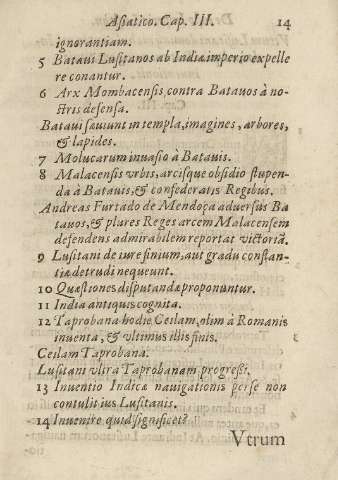 Asiatico. Cap. III. 14
ignorantiam.
5 Bataui Lusitanos ab Indiæ imperio expelle
re conantur.
6 Arx Mombacensis, contra Batauos à no-
stris defensa.
Bataui sæuiunt in templa, imagines, arbores,
& lapides.
7 Molucarum inuasio à Batauis.
8 Malacensis vrbis, arcisque obsidio stupen-
da à Batauis, & confederatis Regibus.
Andreas Furtado de Mendoça aduersus Ba
tauos, & plures Reges arcem Malacensem
defendens admirabilem reportat victoriã.
9 Lusitani de iure finium, aut gradu constan-
tiæ detrudi nequeunt.
10 Quæstiones disputandæ proponuntur.
11 India antiquis cognita.
12 Taprobana hodie Ceilam, olim à Romanis
inuenta, & vltimus illis finis.
Ceilam Taprobana.
Lusitani vltra Taprobanam progressi.
13 Inuentio Indicæ nauigationis per se non
contulit ius Lusitanis.
14 Inuenire quid significet?
Vtrum